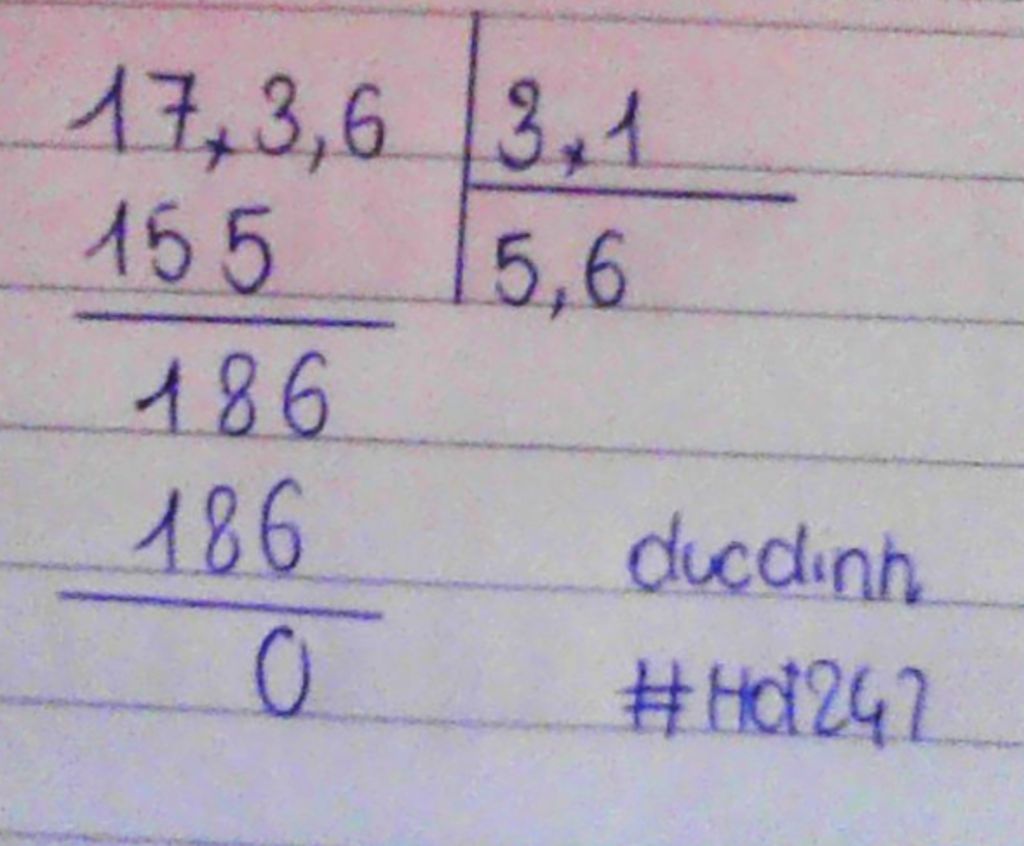 17,3,6 3,1
155 5,6
186
186
0
ducdinh
#Hd247